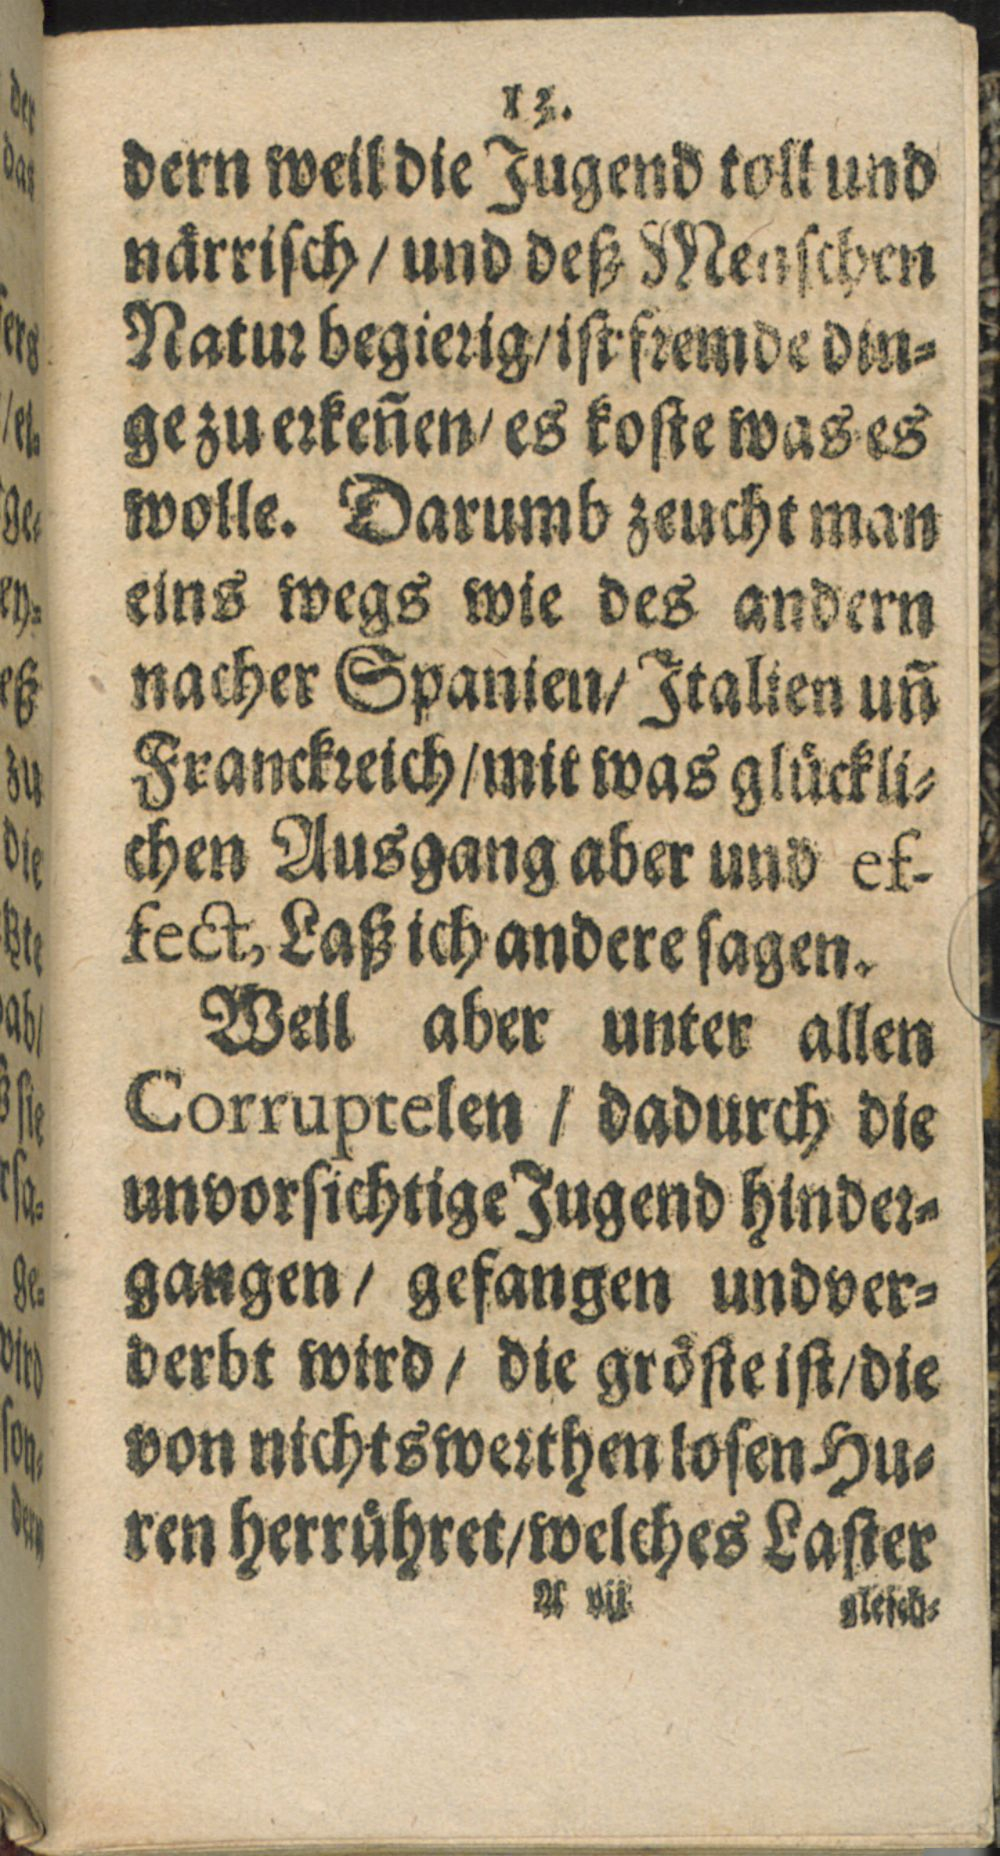 13.
dern weil die Jugend toll und
närrisch / und deß Menschen
Natur begierig / ist fremde din-
ge zu erkeñen / es koste was es
wolle. Darumb zeucht man
eins wegs wie des andern
nacher Spanien / Italien uñ
Franckreich / mit was glückli-
chen Ausgang aber und ef-
fect, Laß ich andere sagen.
Weil aber unter allen
Corruptelen / dadurch die
unvorsichtige Jugend hinder-
gangen / gefangen und ver-
derbt wird / die gröste ist / die
von nichtswerthen losen Hu-
ren herrühret / welches Laster
A vij
gleich-